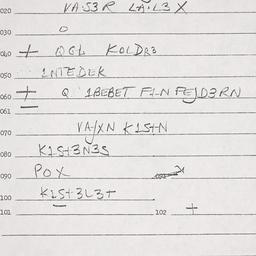 020 VAS3R LA·L3X
030 O
040 + QGL KOLDR3
050 1NTEDEK
060 + Q 1BEBET F1N FEJD3RN
061
070 VA/XN K1S+N
080 K1S+3N3S
090 POX
100 K1S+3L3+
101 102 +